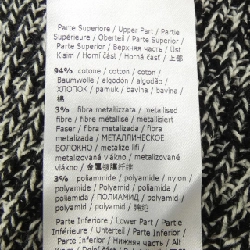 Parte Superiore / Upper Part / Partie
Supérieure / Oberteil / Parte Superior /
Parte Superior / Верхняя часть / Üst
Kalın / Horní část / Horná časť / 上部
94% cotone / cotton / coton /
Baumwolle / algodón / algodão
ХЛОПОК / pamuk / bavlna / bavlna /
棉
3% fibra metallizzata / metallised
fibre / fibre métallisé / metallisiert
Faser / fibra metalizada / fibra
metalizada / МЕТАЛЛИЧЕСКИЕ
ВОЛОКНО / metalize lifi /
metalizovaná vlákno / metalizované
vlákno / 金屬
3% poliammide / polyamide / nylon /
polyamide / Polyamid / poliamida /
poliamida / ПОЛИАМИД / poliamid /
polyamid / polyamid /
Parte Inferiore / Lower Part / Partie
Inférieure / Unterteil / Parte Inferior /
Parte Inferior / Нижняя часть / Alt